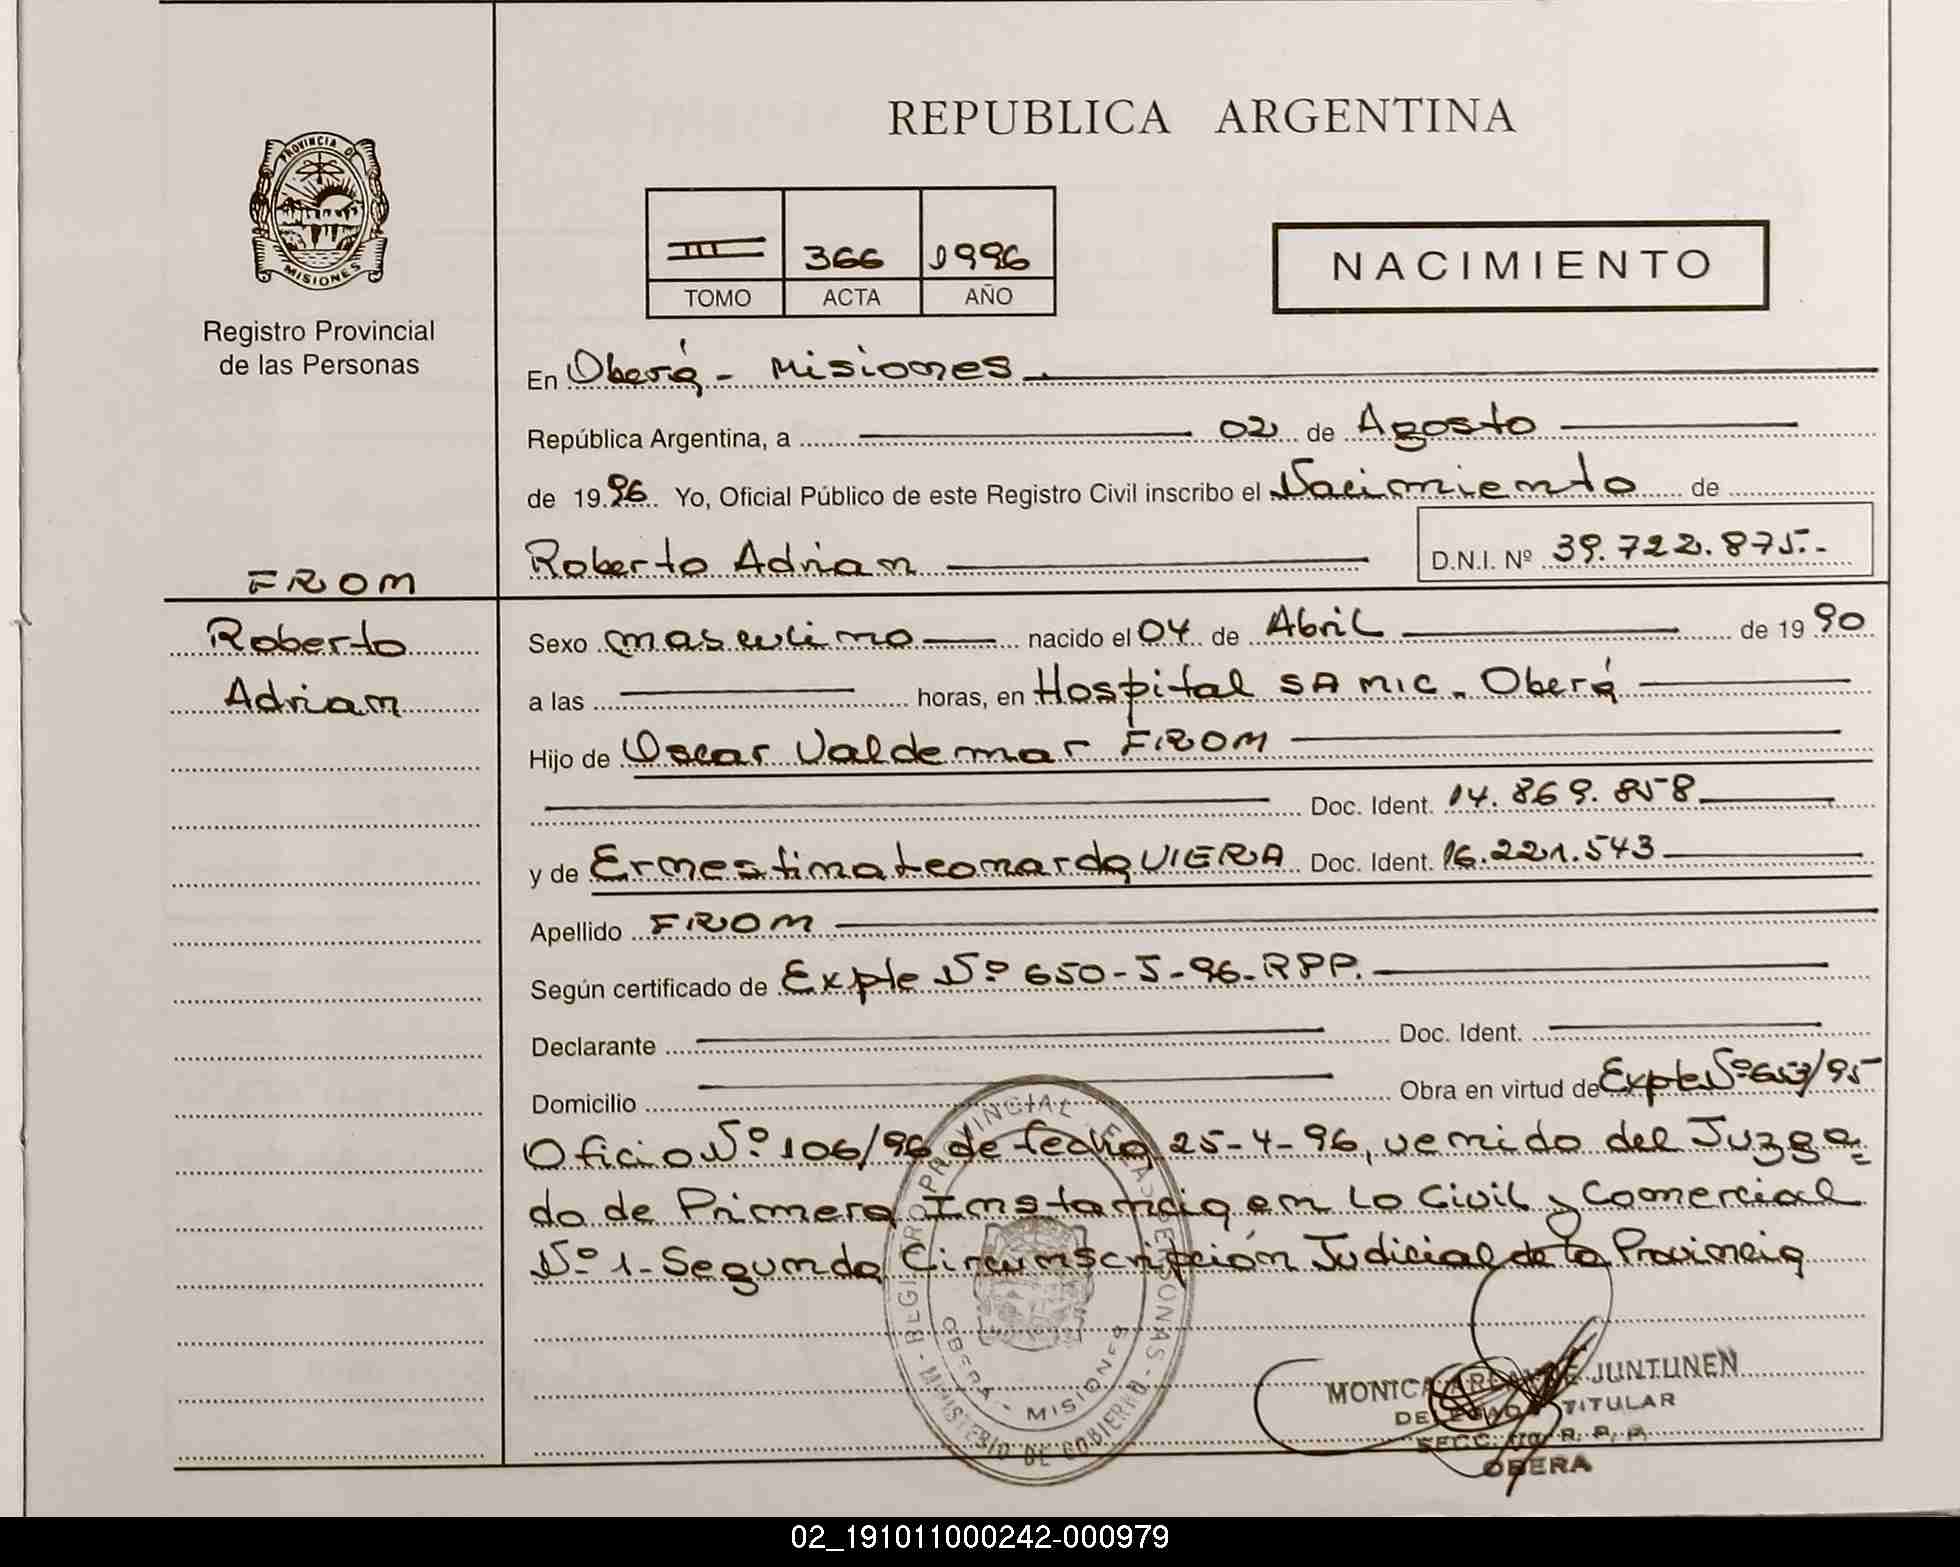 REPUBLICA ARGENTINA
PROVINCIA DE
MISIONES
Registro Provincial
de las Personas
III 366 1996
TOMO ACTA AÑO
NACIMIENTO
En Oberá - Misiones
República Argentina, a 02 de Agosto
de 1996 Yo, Oficial Público de este Registro Civil inscribo el Nacimiento de
Roberto Adrian D.N.I. Nº 39.722.875.-
FROM
Roberto
Adrian
Sexo masculino nacido el 04 de Abril de 1990
a las horas, en Hospital SAMIC. Oberá
Hijo de Oscar Valdemar FROM
Doc. Ident. 14.869.858
y de Ernestina Leonarda VIERA Doc. Ident. 16.221.543
Apellido FROM
Según certificado de Expte Nº 650-J-96-RPP.
Declarante Doc. Ident.
Domicilio Obra en virtud de Expte Nº /95
Oficio Nº 106/96 de fecha 25-4-96, venido del Juzga=
do de Primera Instancia en lo Civil y Comercial
Nº 1- Segunda Circunscripción Judicial de la Provincia
REGISTRO PROVINCIAL DE LAS PERSONAS - MINISTERIO DE GOBIERNO
OBERA - MISIONES
MONICA JUNTUNEN
DELEGADO TITULAR
SECC. R. P. P.
OBERA
02_191011000242-000979